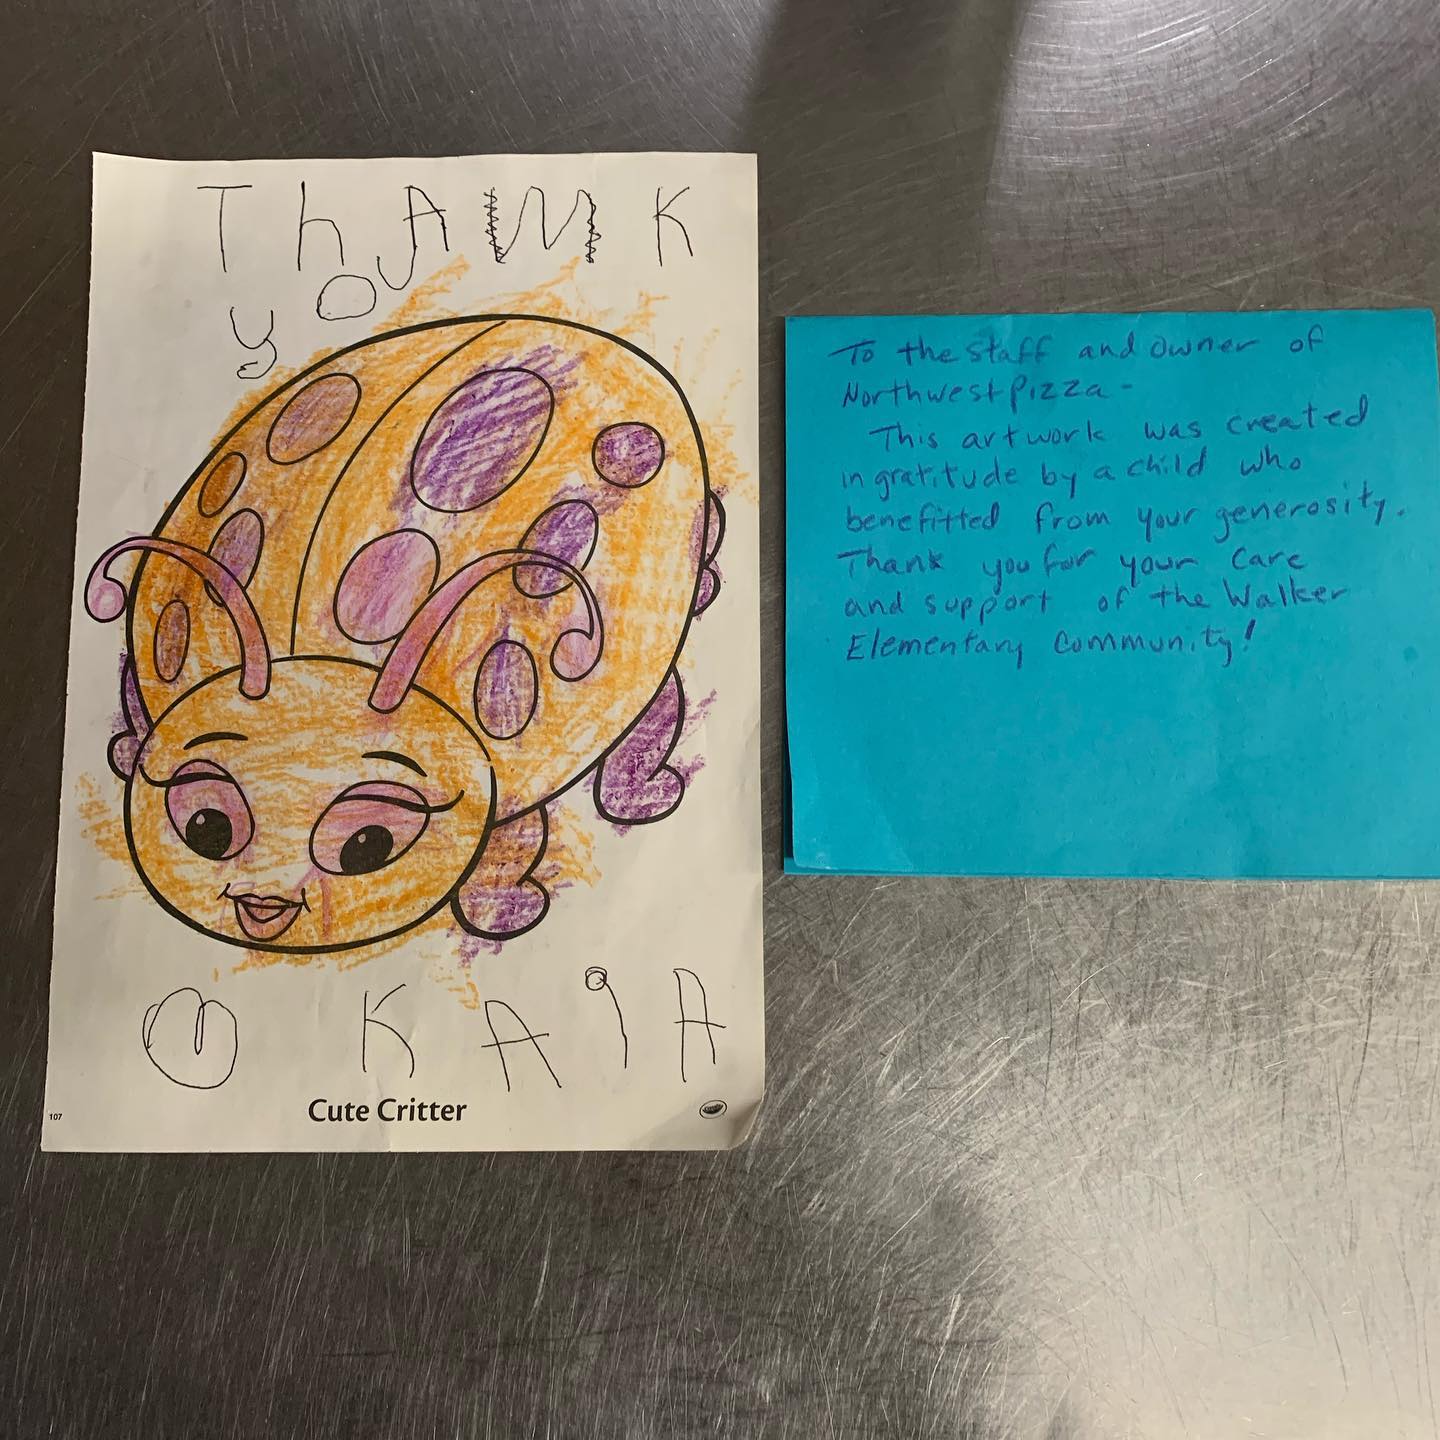 ThANK
you
KAiA
107
Cute Critter
To the staff and owner of
Northwest Pizza -
This artwork was created
in gratitude by a child who
benefitted from your generosity.
Thank you for your care
and support of the Walker
Elementary Community!